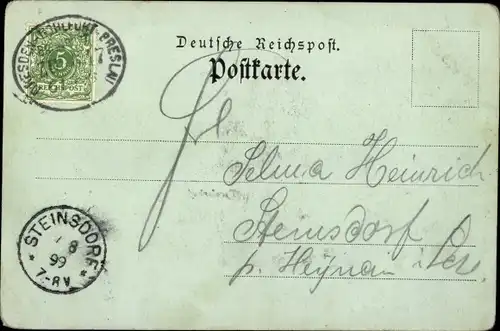 DRESDEN-KOHLFURT-BRESLAU
5
REICHSPOST
Deutsche Reichspost.
Postkarte.
Frl.
Selma Heinrich
Steinsdorf
p. Haynau i. Schl.
STEINSDORF
8
99
7-8V